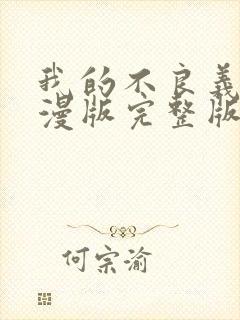 我的不良義
漫版完整版
何宗渝